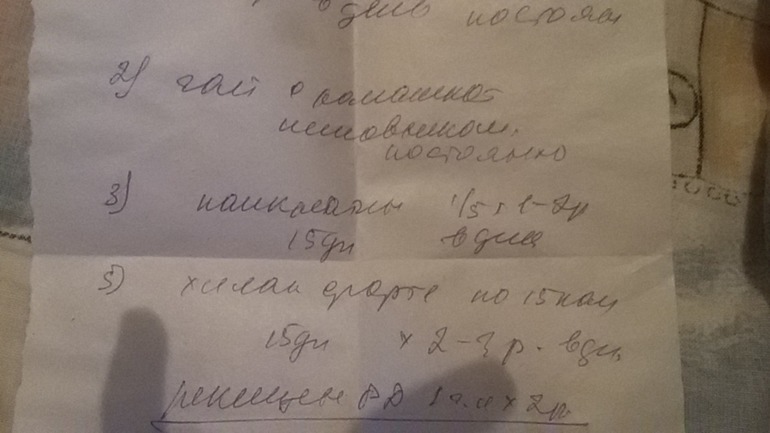 в день постоян
2) чай с ромашкой
шиповником,
постоянно
3) 1/5 x 1-2р
15дн в день
5) хилак форте по 15кап
15дн x 2-3 р. вдн.
РД x 2р